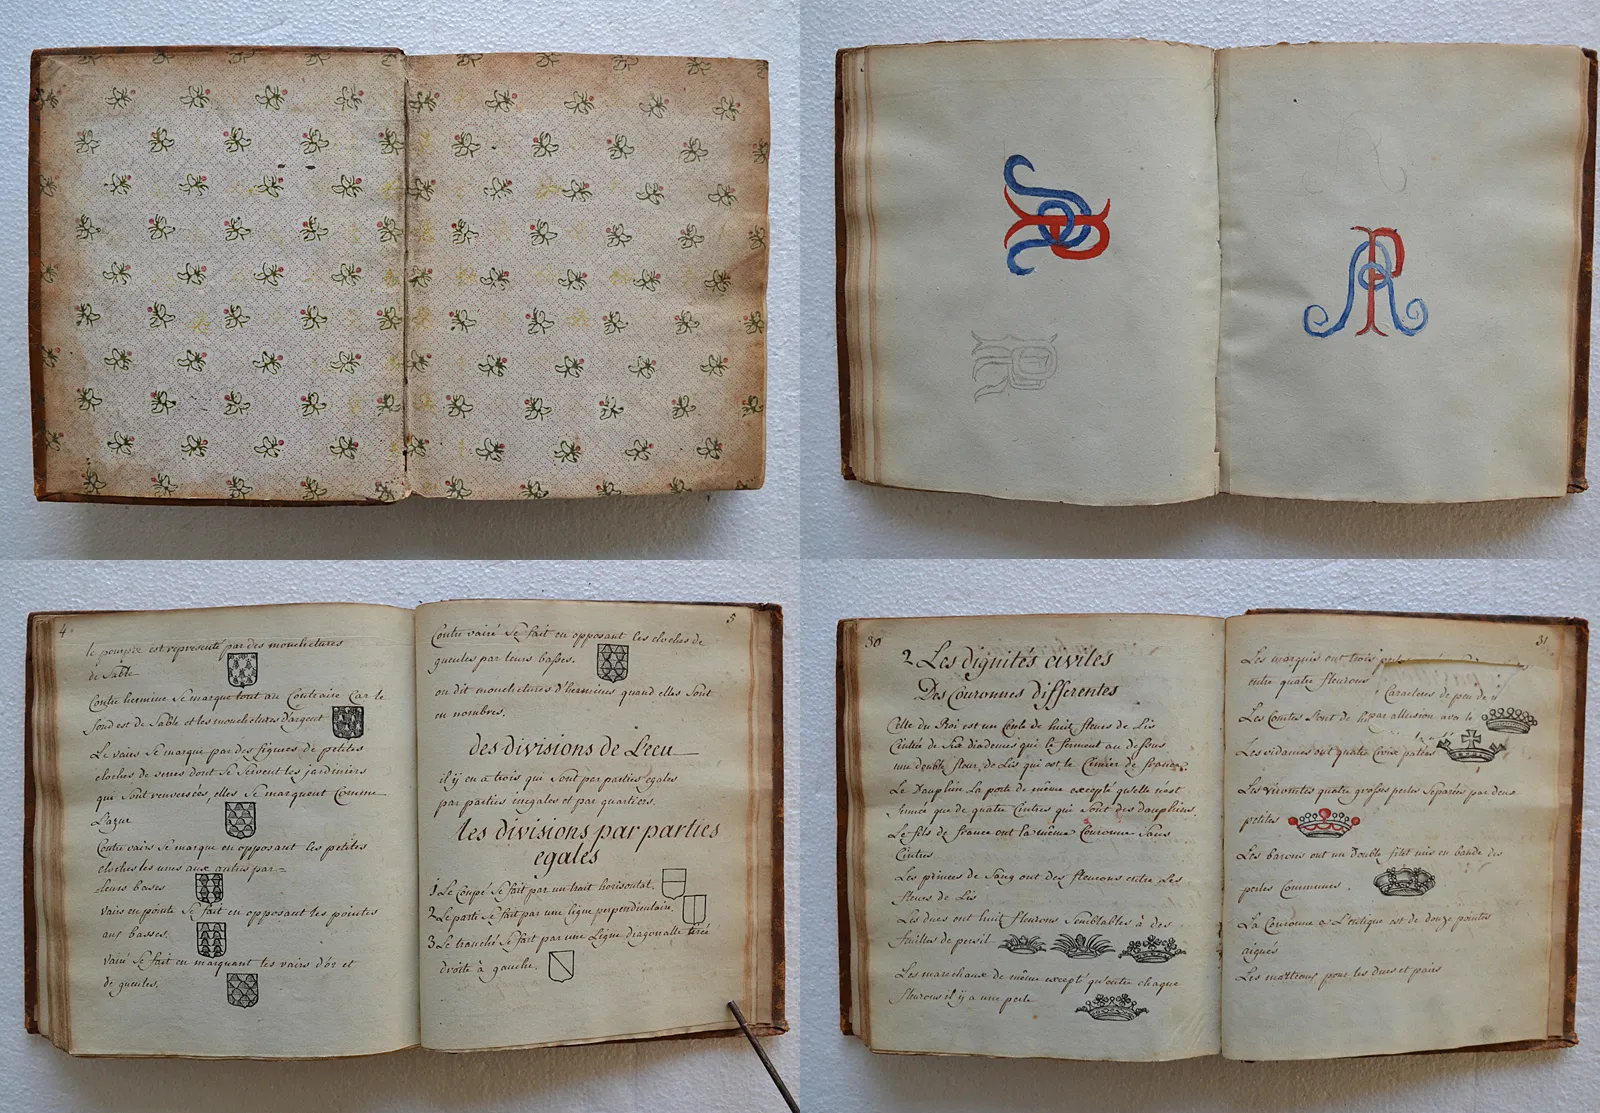 4
le pourpre est représenté par des mouchetures
de sable
Contre hermine se marque tout au Contraire Car le
fond est de sable et les mouchetures d'argent
Le vairs se marque par des figures de petites
cloches de verres dont se servent les jardiniers
qui sont renversées, elles se marquent Comme
L'azur
Contre vairs se marque en opposant les petites
cloches les unes aux autres par=
=leurs bases
vairs en pointe se fait en opposant les pointes
aux basses.
vairé se fait en marquant les vairs d'or et
de gueules.
5
Contre vairé se fait en opposant les cloches de
gueules par leurs basses.
on dit mouchetures d'hermines quand elles sont
en nombres.
des divisions de L'ecu
il y en a trois qui sont par parties egales
par parties inegales et par quartiers.
Les divisions par parties
egales
1 Le Coupé se fait par un trait horisontat.
2 Le parti se fait par une ligne perpendiculaire.
3 Le tranché se fait par une Ligne diagonalle tirée
droite à gauche.
30
2 Les dignités civiles
Des Couronnes differentes
Celle du Roi est un Cercle de huit fleurs de Lis
Cintrée de Six diademes qui le ferment au dessus
une double fleur de Lis qui est le Cimier de france.
Le Dauphin La porte de même excepté qu'elle n'est
fermée que de quatre Cintres qui sont des dauphins.
Le fils de france ont la même Couronne sans
Cintres
Les princes de Sang ont des fleurons entre Les
fleurs de Lis
Les ducs ont huit fleurons Semblables à des
feuilles de persil
Les marechaux de même excepté qu'outre chaque
fleurons il y a une perle
31
Les marquis ont trois perl
entre quatre fleurons
Caracteres de peu de
Les Comtes sont de par allusion avec le
Les vidames ont quatre Croix patées
Les vicomtes quatre grosses perles Separées par deux
petites
Les barons ont un Double filet mis en bande des
perles Communes.
La Couronne a L'entique est de douze pointes
aigues
Les manteaux pour les ducs et pairs